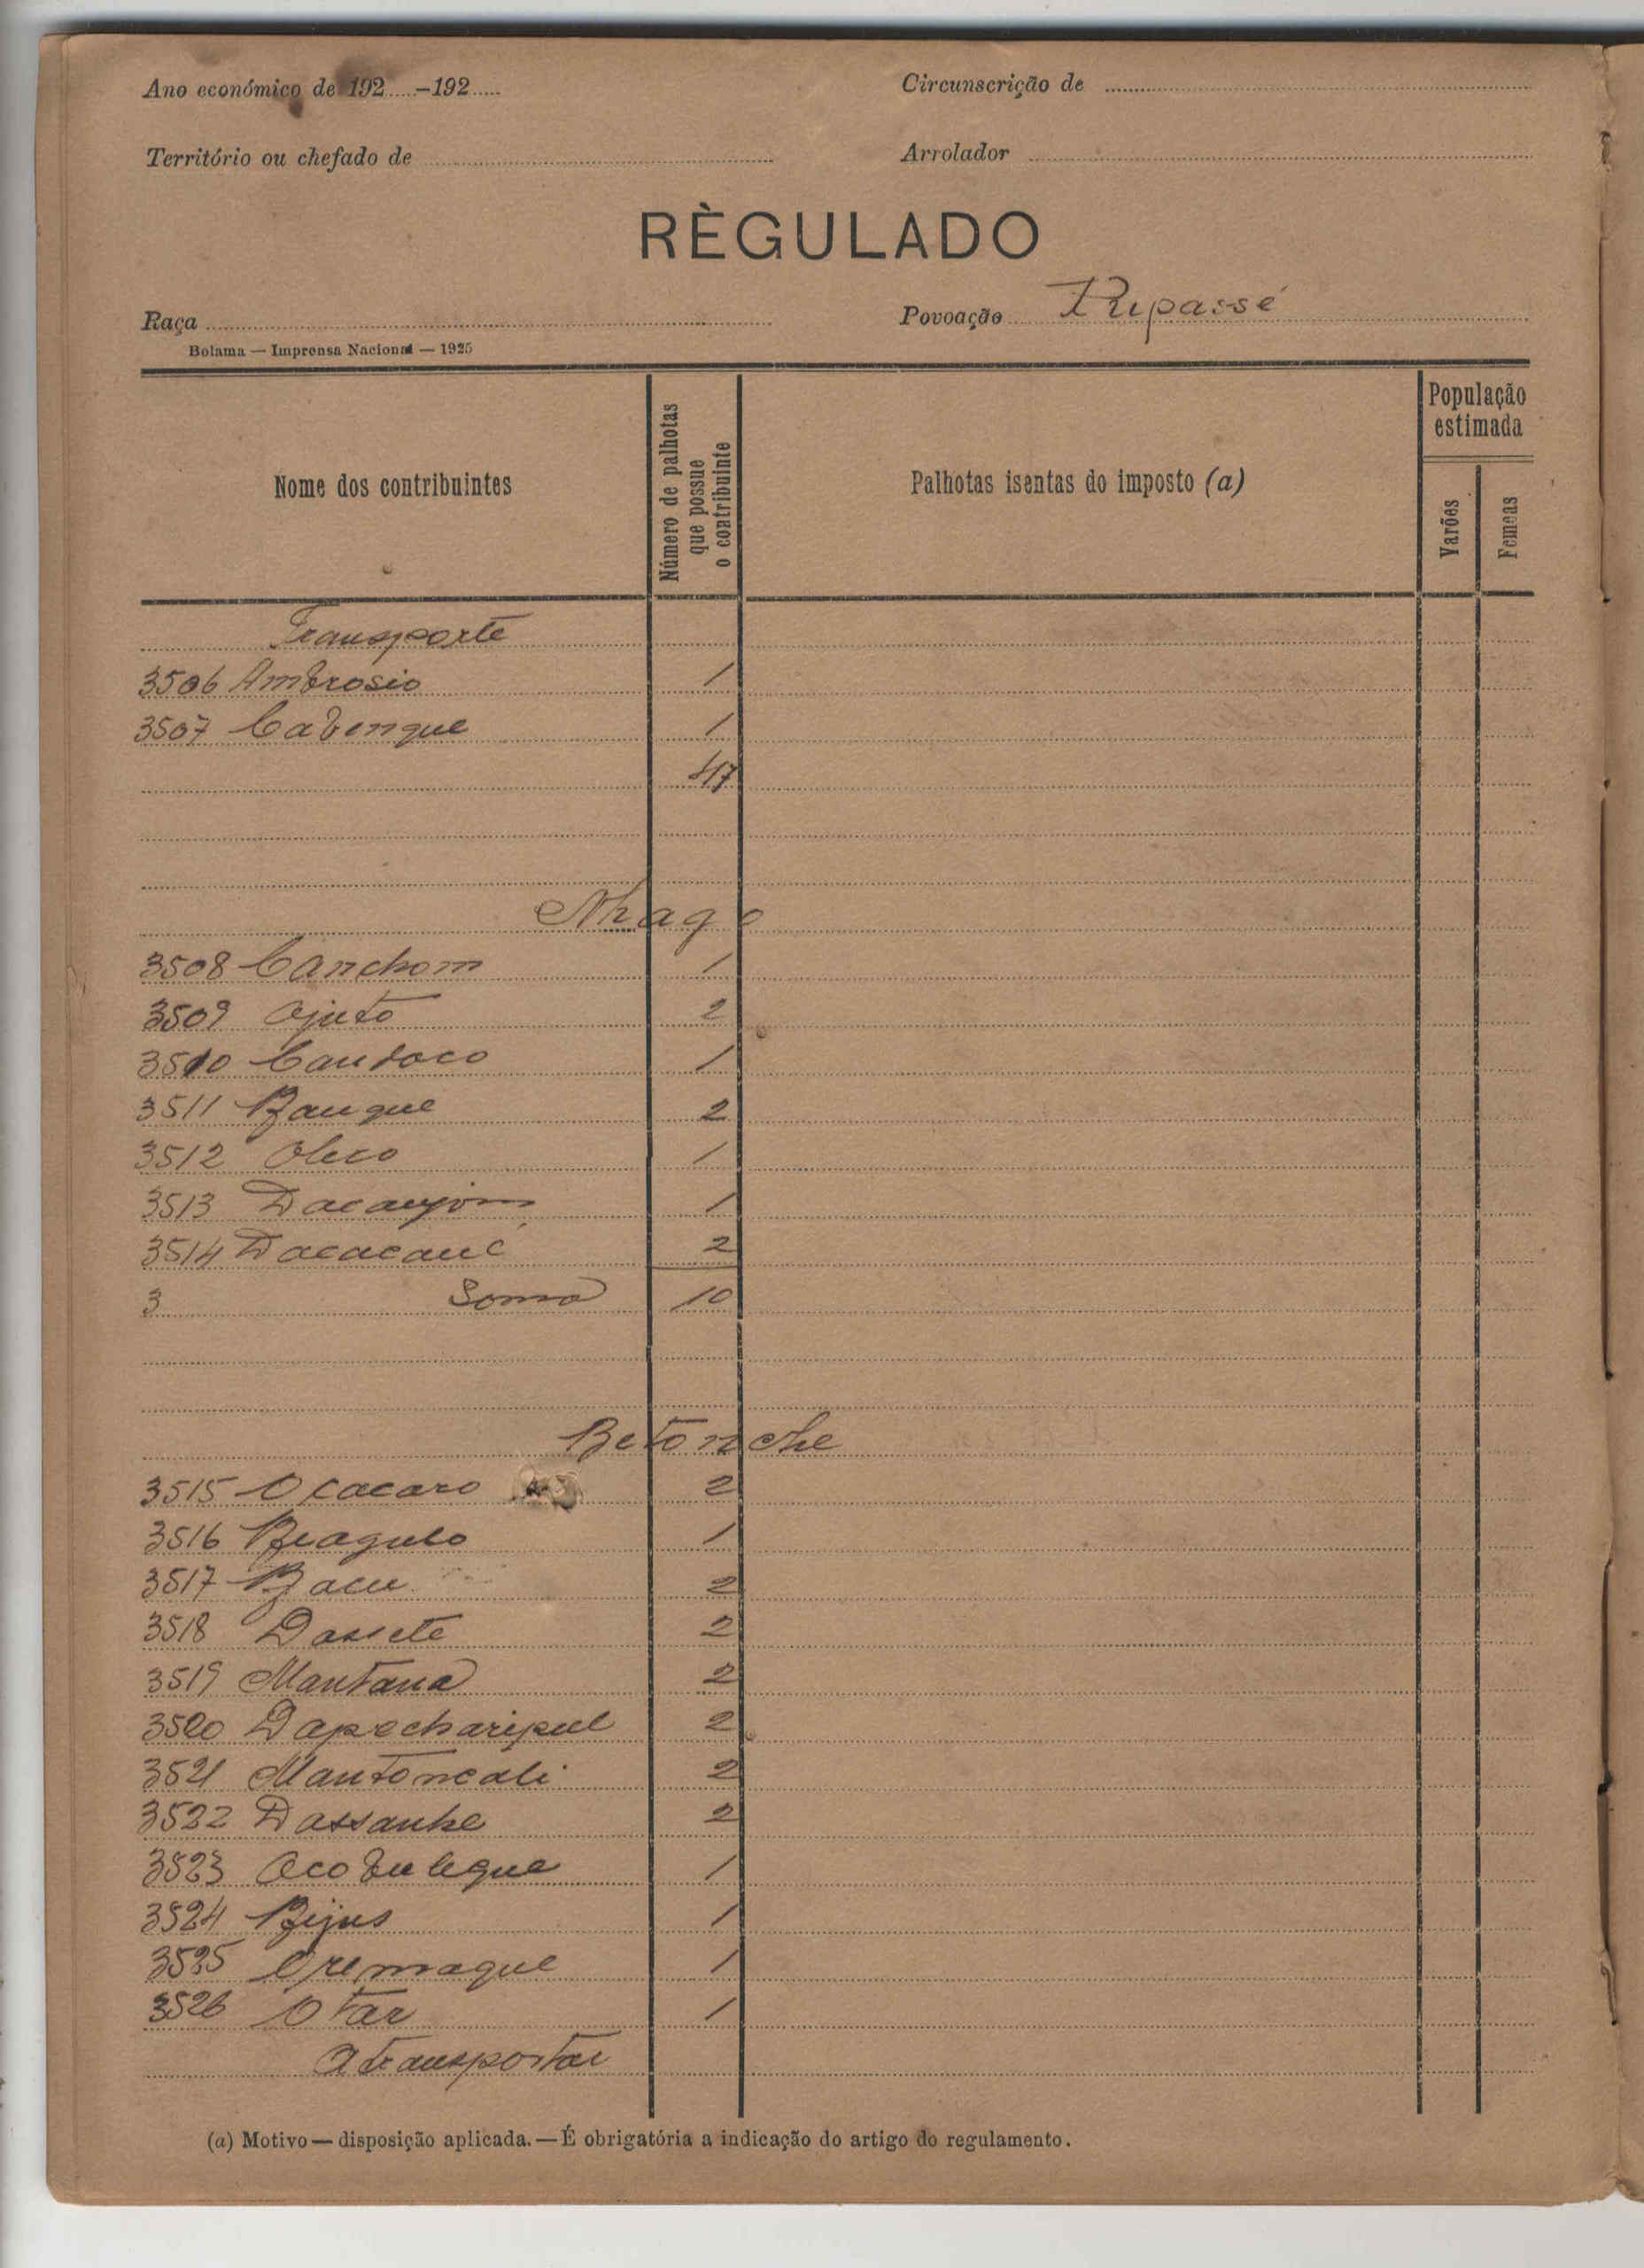 Ano económico de 192.....-192.....
Circunscrição de
Território ou chefado de
Arrolador
RÈGULADO
Raça
Povoação
Bolama — Imprensa Nacional — 1925
Nome dos contribuintes
Número de palhotas que possue o contribuinte
Palhotas isentas do imposto (a)
População estimada
Varões
Femeas
Transporte
3506 Ambrosio 1
3507 Cabengue 1
47
Nhago
3508 Canchom 1
3509 Ojuto 2
3510 Caudoco 1
3511 Bauque 2
3512 Oleco 1
3513 1
3514 Dacacaué 2
3 Soma 10
Betonche
3515 Ocacaro 2
3516 Beagubo 1
3517 Bacu 2
3518 Dassete 2
3519 Mantana 2
3520 Dapecharipul 2
3521 Mantoncali 2
3522 Dassanhe 2
3523 Ocobulegue 1
3524 Bijus 1
3525 Oremaque 1
3526 Otar 1
A transportar
(a) Motivo — disposição aplicada. — É obrigatória a indicação do artigo do regulamento.